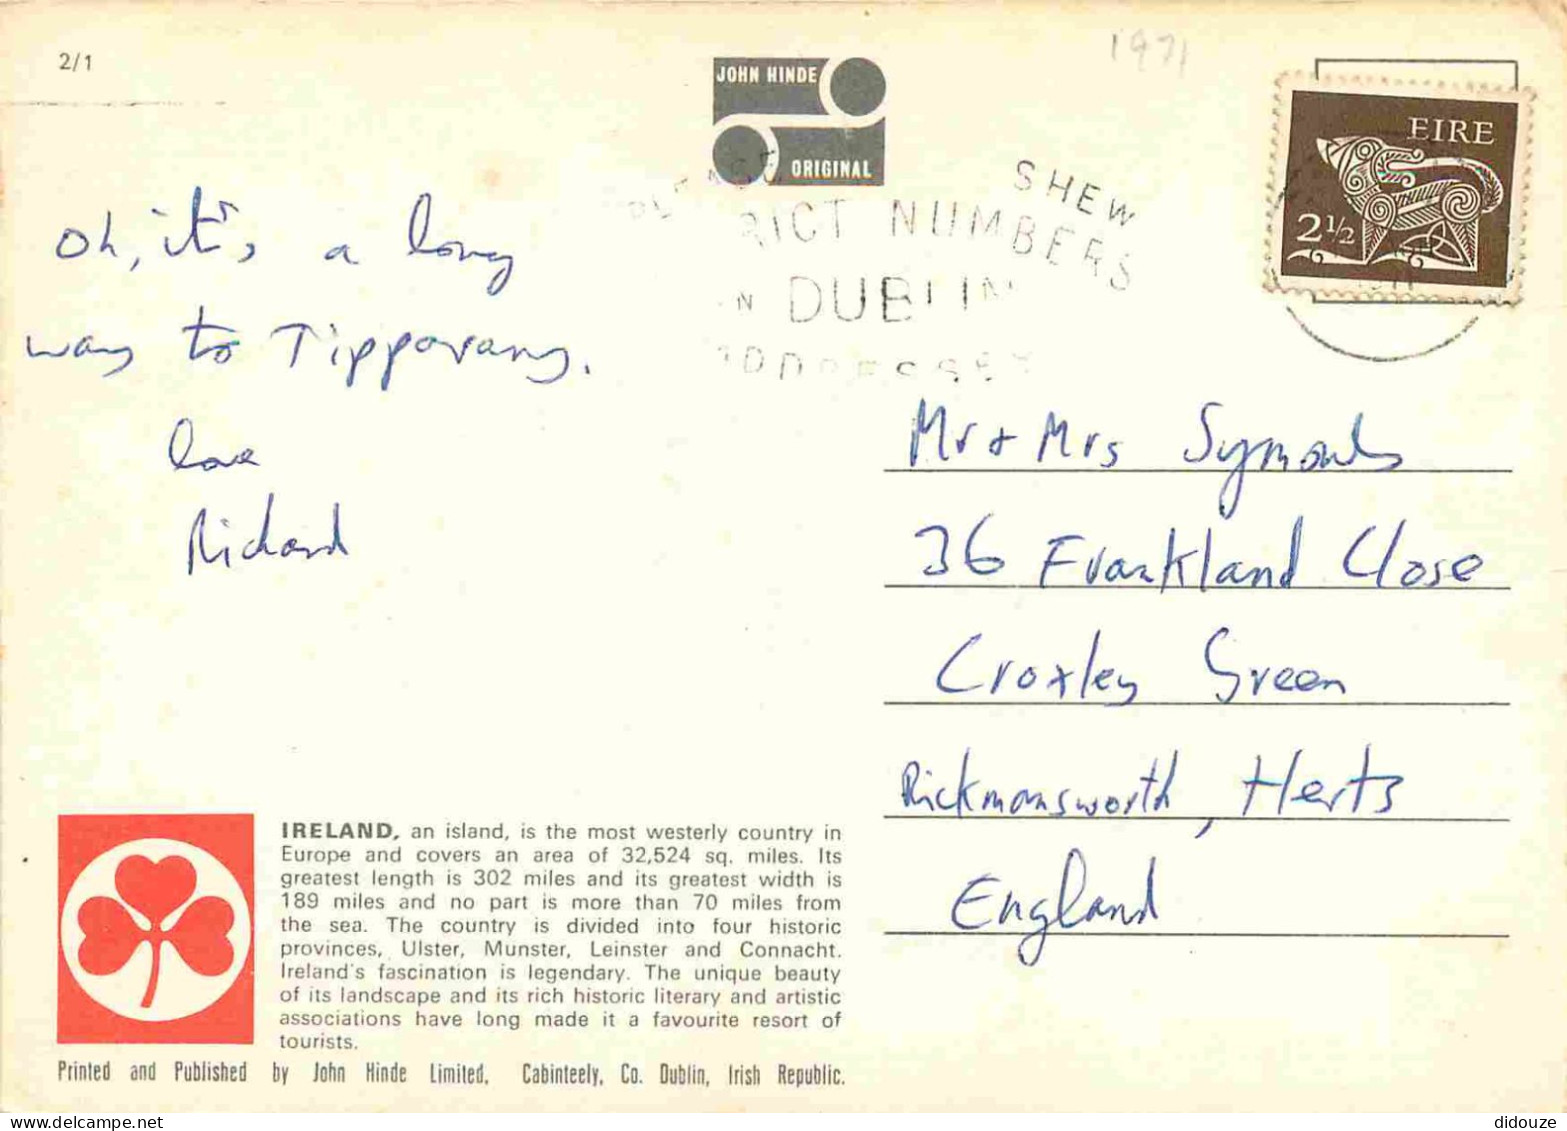 2/1
1971
JOHN HINDE
ORIGINAL
EIRE
2½
PLEASE SHEW
RICT NUMBERS
IN DUBLIN
ADDRESSES
Oh, it's a long
way to Tipporary.
love
Richard
Mr + Mrs Symonds
36 Frankland Close
Croxley Green
Rickmansworth, Herts
England
IRELAND, an island, is the most westerly country in
Europe and covers an area of 32,524 sq. miles. Its
greatest length is 302 miles and its greatest width is
189 miles and no part is more than 70 miles from
the sea. The country is divided into four historic
provinces, Ulster, Munster, Leinster and Connacht.
Ireland's fascination is legendary. The unique beauty
of its landscape and its rich historic literary and artistic
associations have long made it a favourite resort of
tourists.
Printed and Published by John Hinde Limited, Cabinteely, Co. Dublin, Irish Republic.
didouze